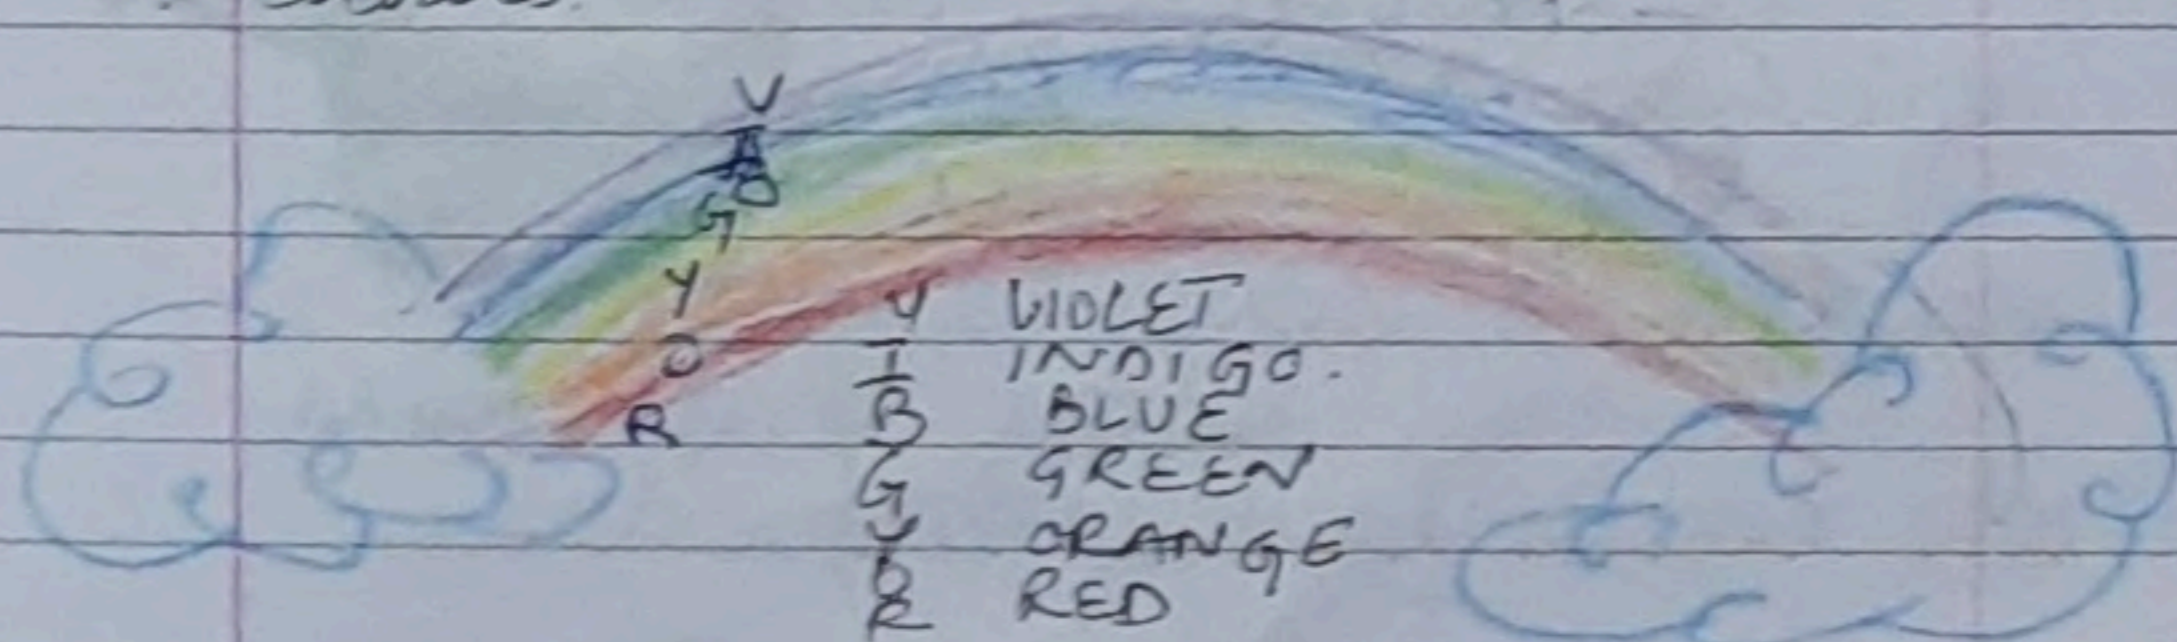 V
I
B
G
Y
O
R
V VIOLET
I INDIGO.
B BLUE
G GREEN
Y ORANGE
O
R RED